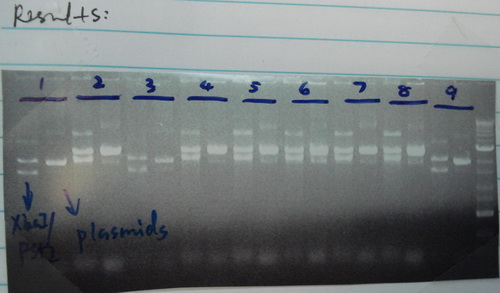 Results:
1 2 3 4 5 6 7 8 9
XbaI/
plasmids